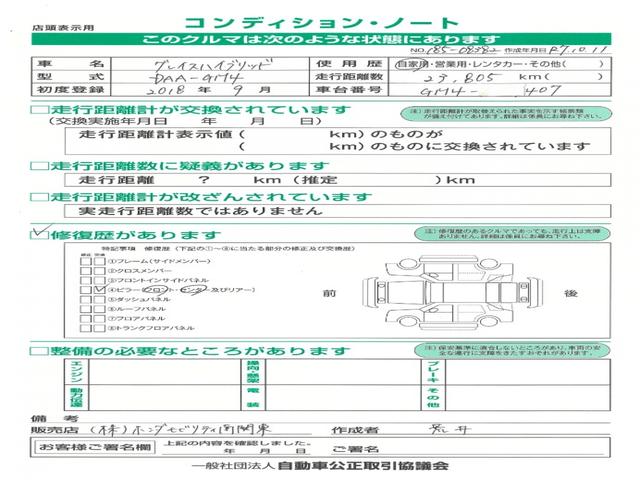 店頭表示用 コンディション・ノート
このクルマは次のような状態にあります
NO.185-08382 作成年月日 R7.10.11
車名 グレイスハイブリッド 使用歴 自家用・営業用・レンタカー・その他( )
型式 DAA-GM4 走行距離数 23,805 km( )
初度登録 2018年 9月 車台番号 GM4- 407
□走行距離計が交換されています
(交換実施年月日 年 月 日)
注)走行距離計が取替えられた事実を示す帳票類が備え付けてあります。詳細は係員にお尋ね下さい。
走行距離計表示値( km)のものが
( km)のものに交換されています
□走行距離数に疑義があります
走行距離 ? km(推定 )km
□走行距離計が改ざんされています
実走行距離数ではありません
□修復歴があります
注)修復歴のあるクルマであっても、走行上は支障ありません。詳細は係員にお尋ね下さい。
特記事項 修復歴(下記の①~⑧に当たる部分の修正及び交換歴)
修正 交換
①フレーム(サイドメンバー)
②クロスメンバー
③フロントインサイドパネル
④ピラー(フロント・センター及びリアー)
⑤ダッシュパネル
⑥ルーフパネル
⑦フロアパネル
⑧トランクフロアパネル
前 後
□整備の必要なところがあります
注)保安基準に適合しないところがあり、車両の安全な運行に支障をきたすおそれがあります。
エンジン ブレーキ
動力伝達 電装 その他
備考
販売店 (株)ホンダモビリティ南関東 作成者 荒井
お客様ご署名欄 上記の内容を確認しました。
年 月 日 ご署名
一般社団法人 自動車公正取引協議会